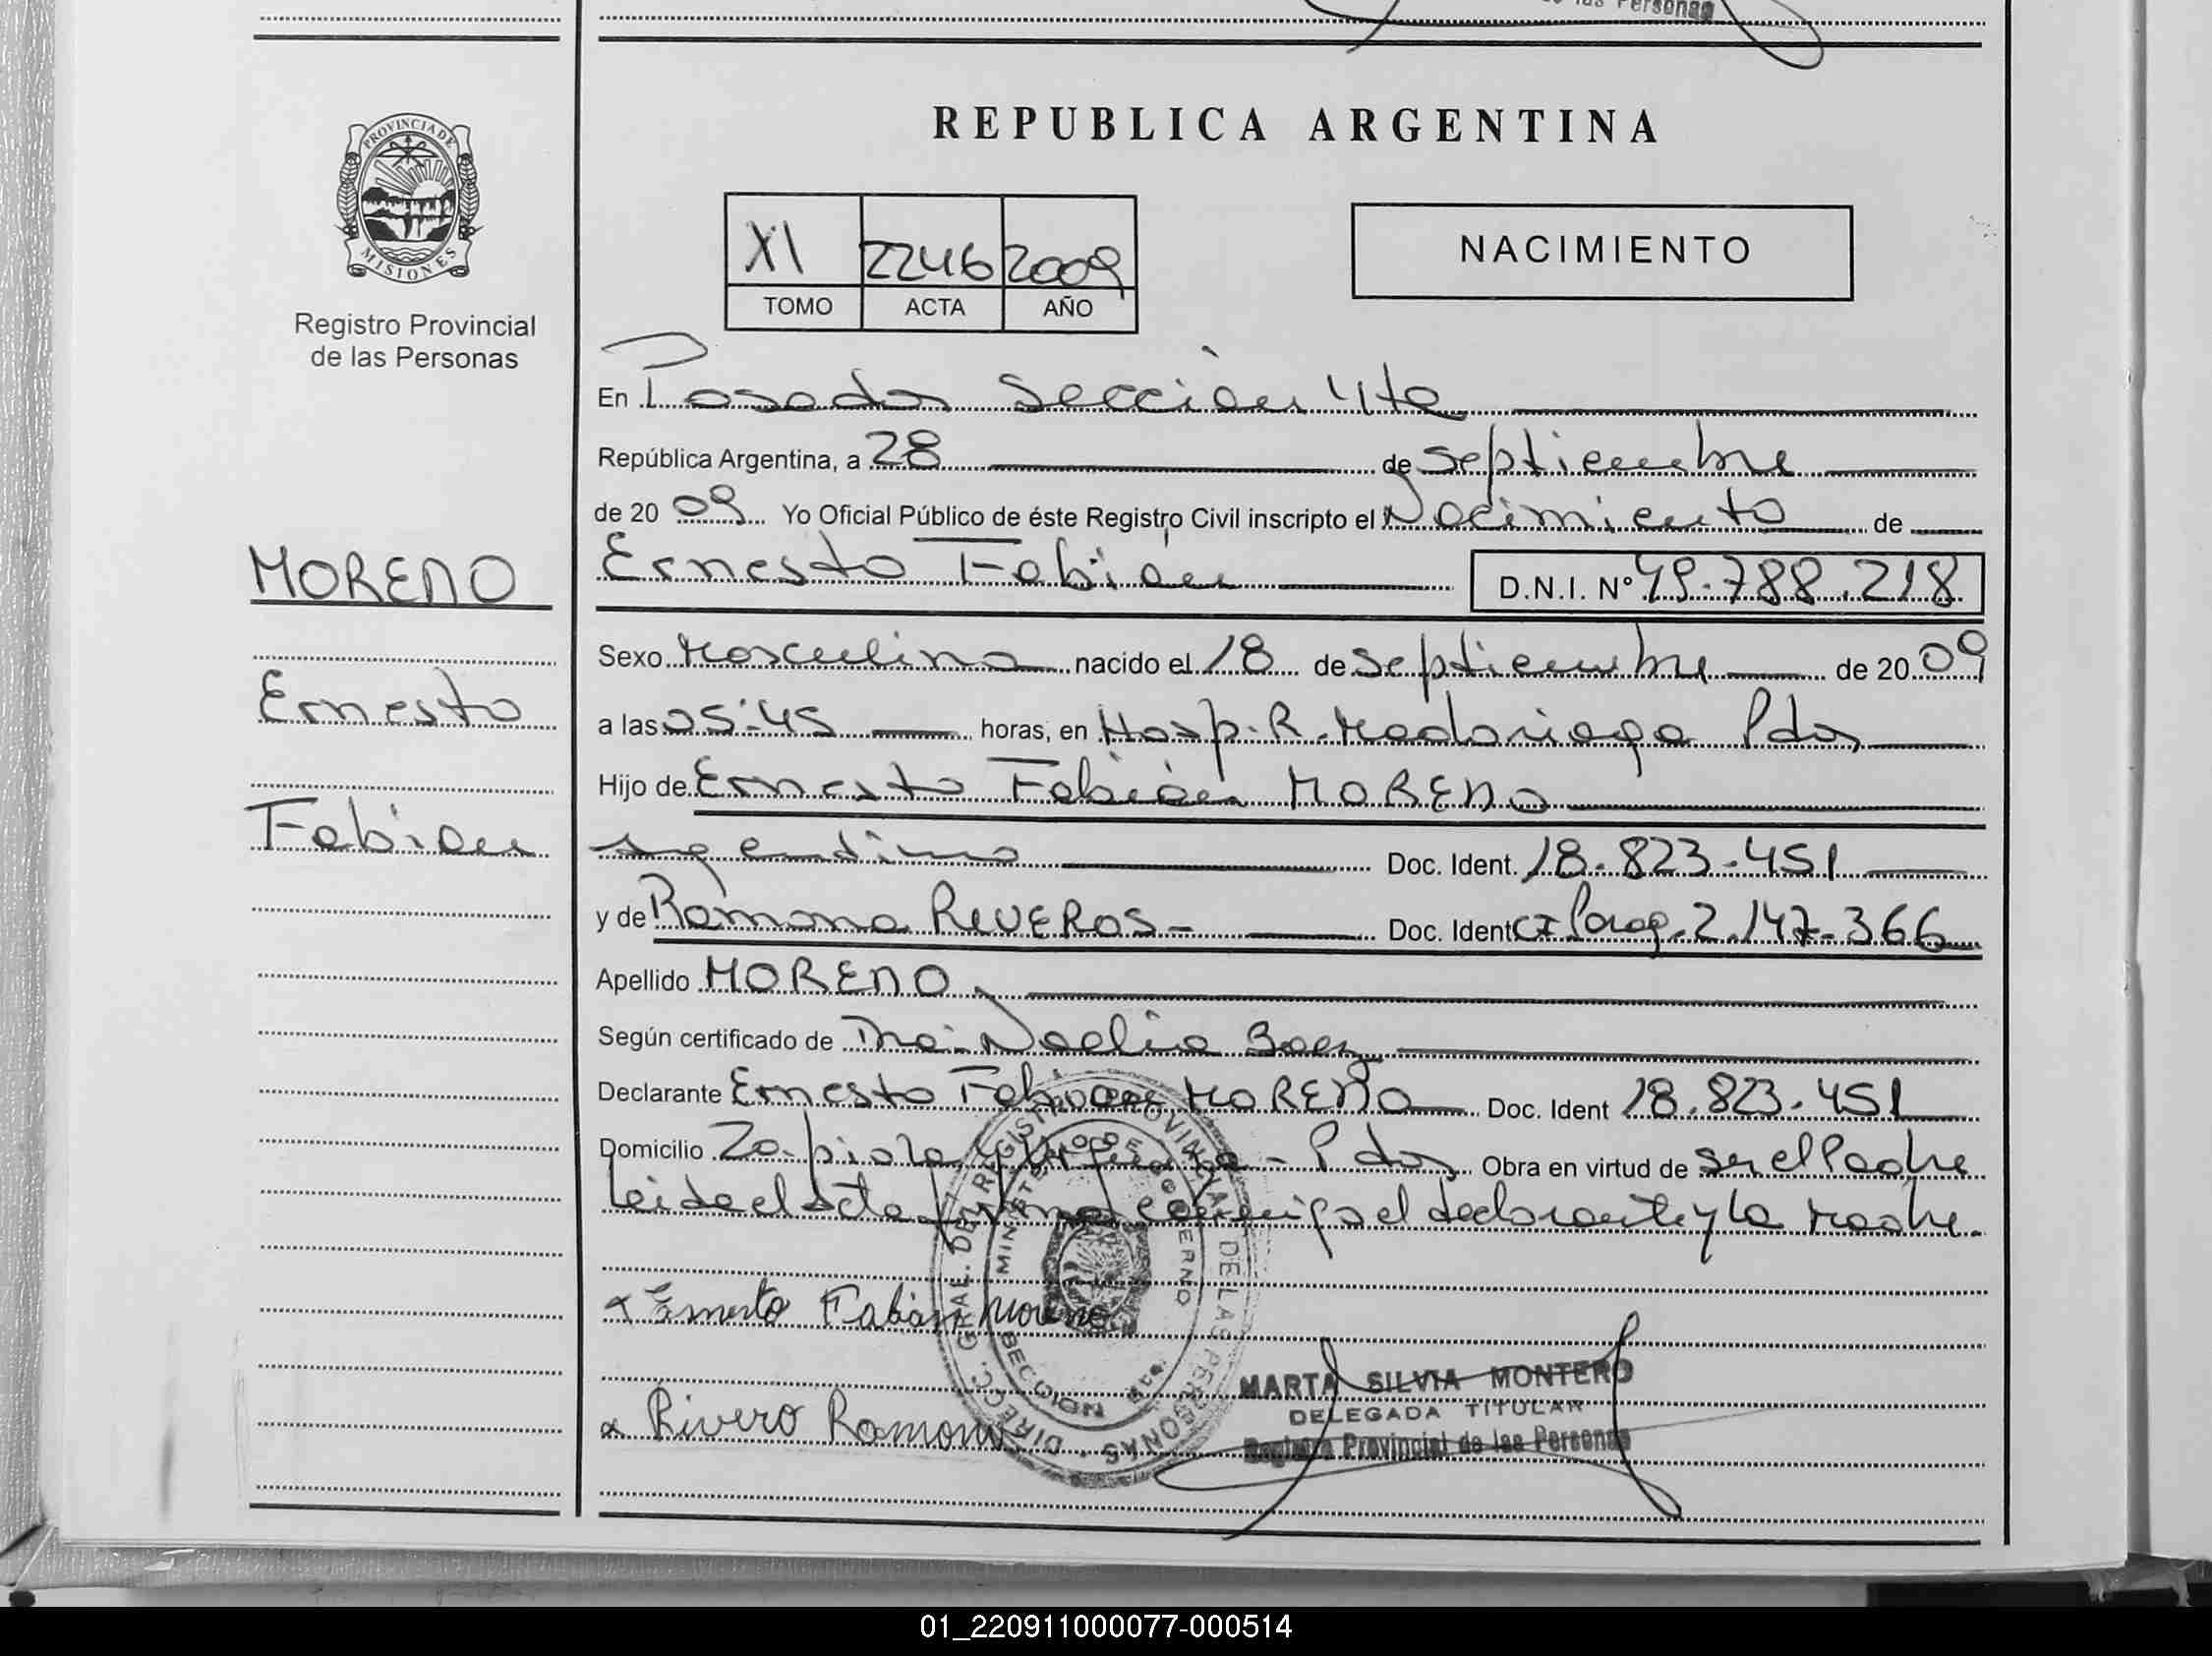 de las Personas
REPUBLICA ARGENTINA
PROVINCIA DE
MISIONES
Registro Provincial
de las Personas
XI 2246 2009
TOMO ACTA AÑO
NACIMIENTO
En Posadas Sección 4ta
República Argentina, a 28 de Septiembre
de 20 09 Yo Oficial Público de éste Registro Civil inscripto el Nacimiento de
MORENO
Ernesto
Fabián
Ernesto Fabián D.N.I. Nº 49.788.218
Sexo Masculino nacido el 18 de Septiembre de 20 09
a las 05:45 horas, en Hosp. R. Madariaga Pdas
Hijo de Ernesto Fabián MORENO
Argentino Doc. Ident. 18.823.451
y de Ramona RIVEROS - Doc. Ident CI Parag. 2.147.366
Apellido MORENO
Según certificado de Dra. Noelia Baez
Declarante Ernesto Fabián MORENO Doc. Ident 18.823.451
Domicilio Zapiola y - Pdas Obra en virtud de ser el Padre
Leida el acta firma conmigo el declarante y la Madre.
Ernesto Fabián Moreno
Rivero Ramona
DIRECC. GRAL. DEL REGISTRO PROVINCIAL DE LAS PERSONAS
MINISTERIO DE GOBIERNO
SECCION 4ta.
MARTA SILVIA MONTERO
DELEGADA TITULAR
Registro Provincial de las Personas
01_220911000077-000514